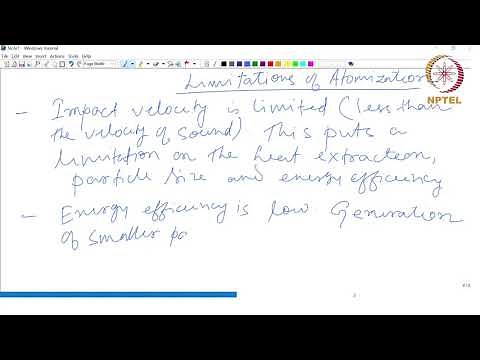 Note1 - Windows Journal
File Edit View Insert Actions Tools Help
Page Width
NPTEL
Limitations of Atomization
- Impact velocity is limited (less than
the velocity of sound) This puts a
limitation on the heat extraction,
particle size and energy efficiency
- Energy efficiency is low. Generation
of smaller pa